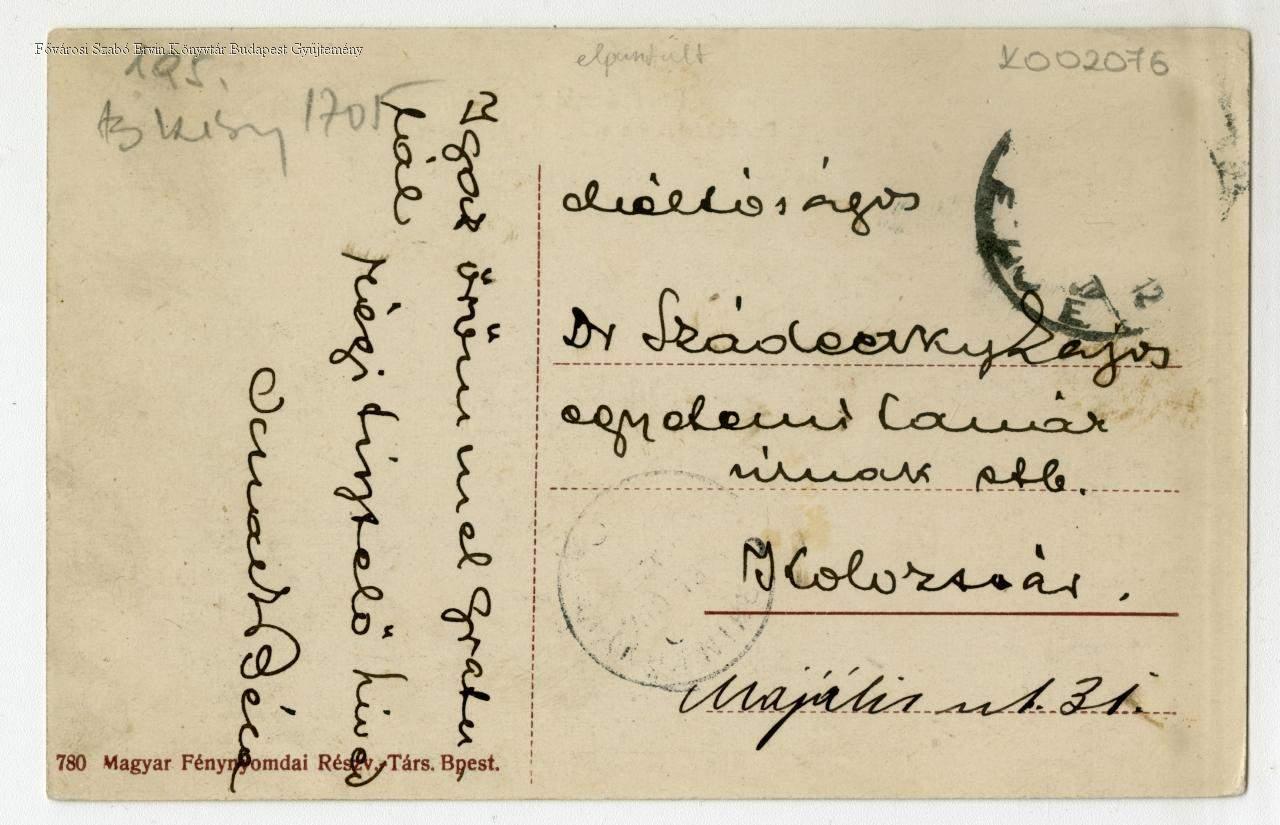 Fővárosi Szabó Ervin Könyvtár Budapest Gyűjtemény
195.
1705
elpusztult
X002076
Igaz örömmel gratu
lál
régi tisztelő híved
Béla
Méltóságos
Dr Szádeczky Lajos
egyetemi tanár
úrnak stb.
Kolozsvár.
Majális ut. 31.
780 Magyar Fénynyomdai Részv.-Társ. Bpest.